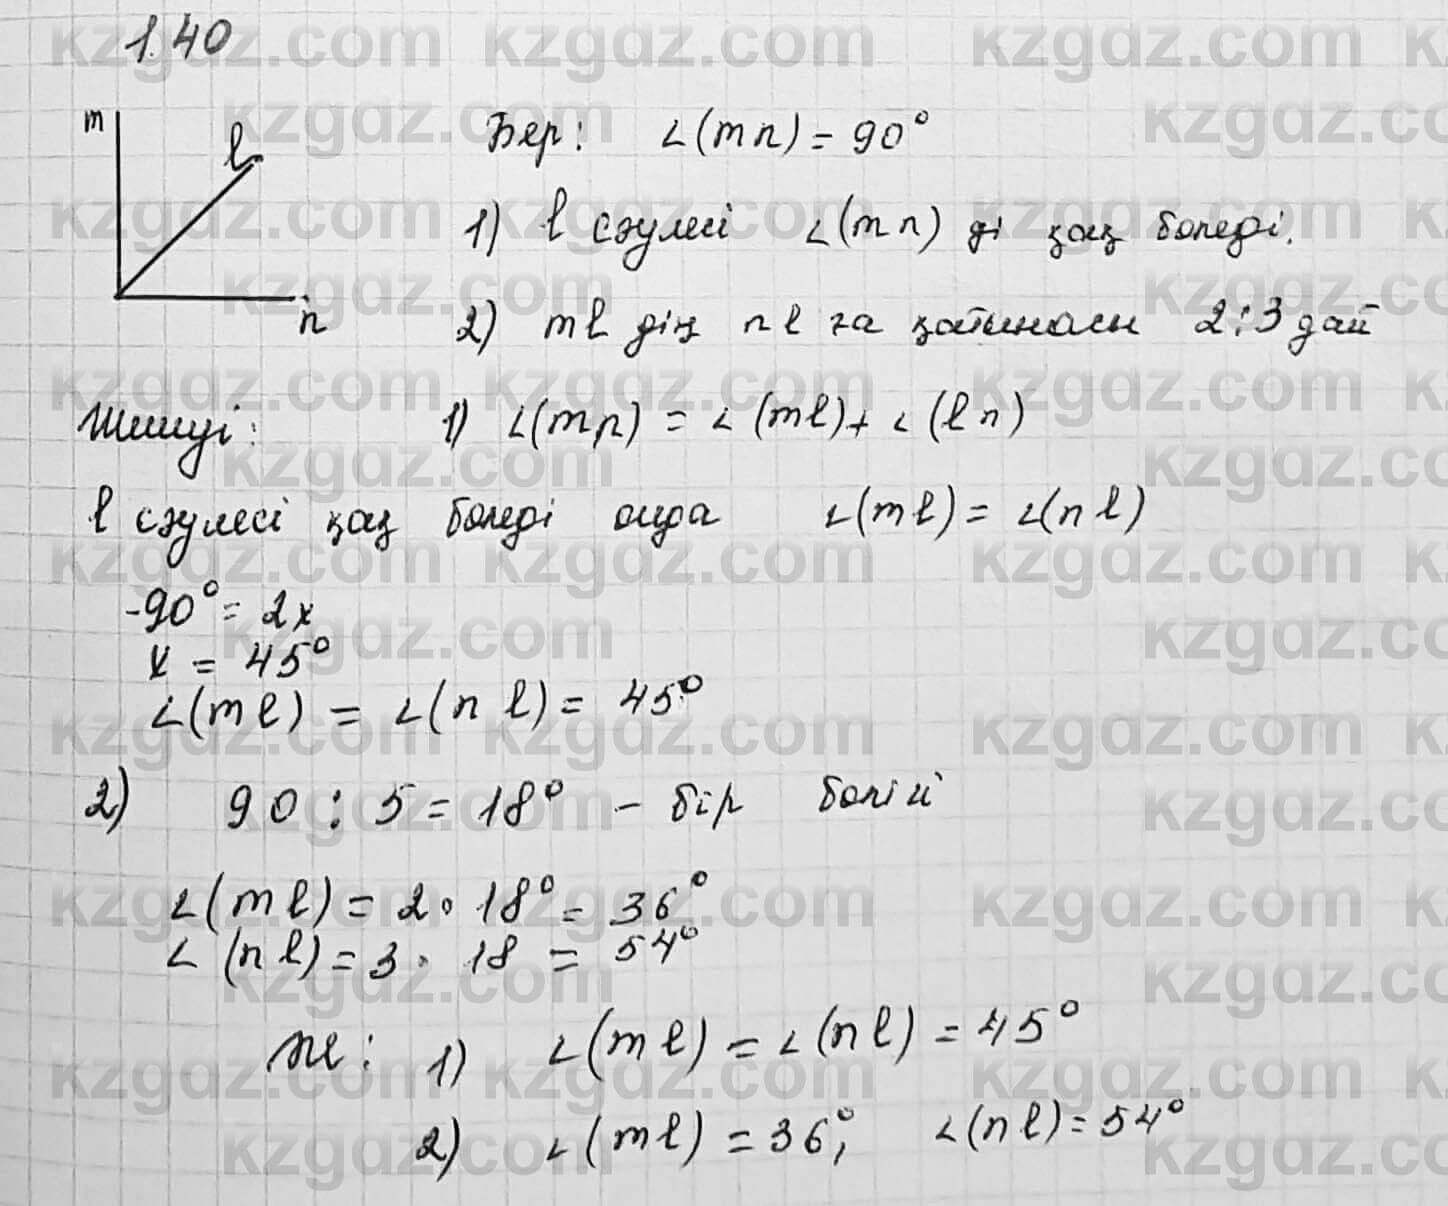 1.40
m
l
n
Бер: ∠(mn) = 90°
1) l сәулесі ∠(mn) ді қақ бөледі.
2) ml дің nl ға қатынасы 2:3 дай
Шешуі: 1) ∠(mn) = ∠(ml) + ∠(ln)
l сәулесі қақ бөледі онда ∠(ml) = ∠(nl)
-90° = 2x
x = 45°
∠(ml) = ∠(nl) = 45°
2) 90 : 5 = 18° – бір бөлігі
∠(ml) = 2 · 18° = 36°
∠(nl) = 3 · 18 = 54°
Ж: 1) ∠(ml) = ∠(nl) = 45°
2) ∠(ml) = 36°; ∠(nl) = 54°
kzgaz.com